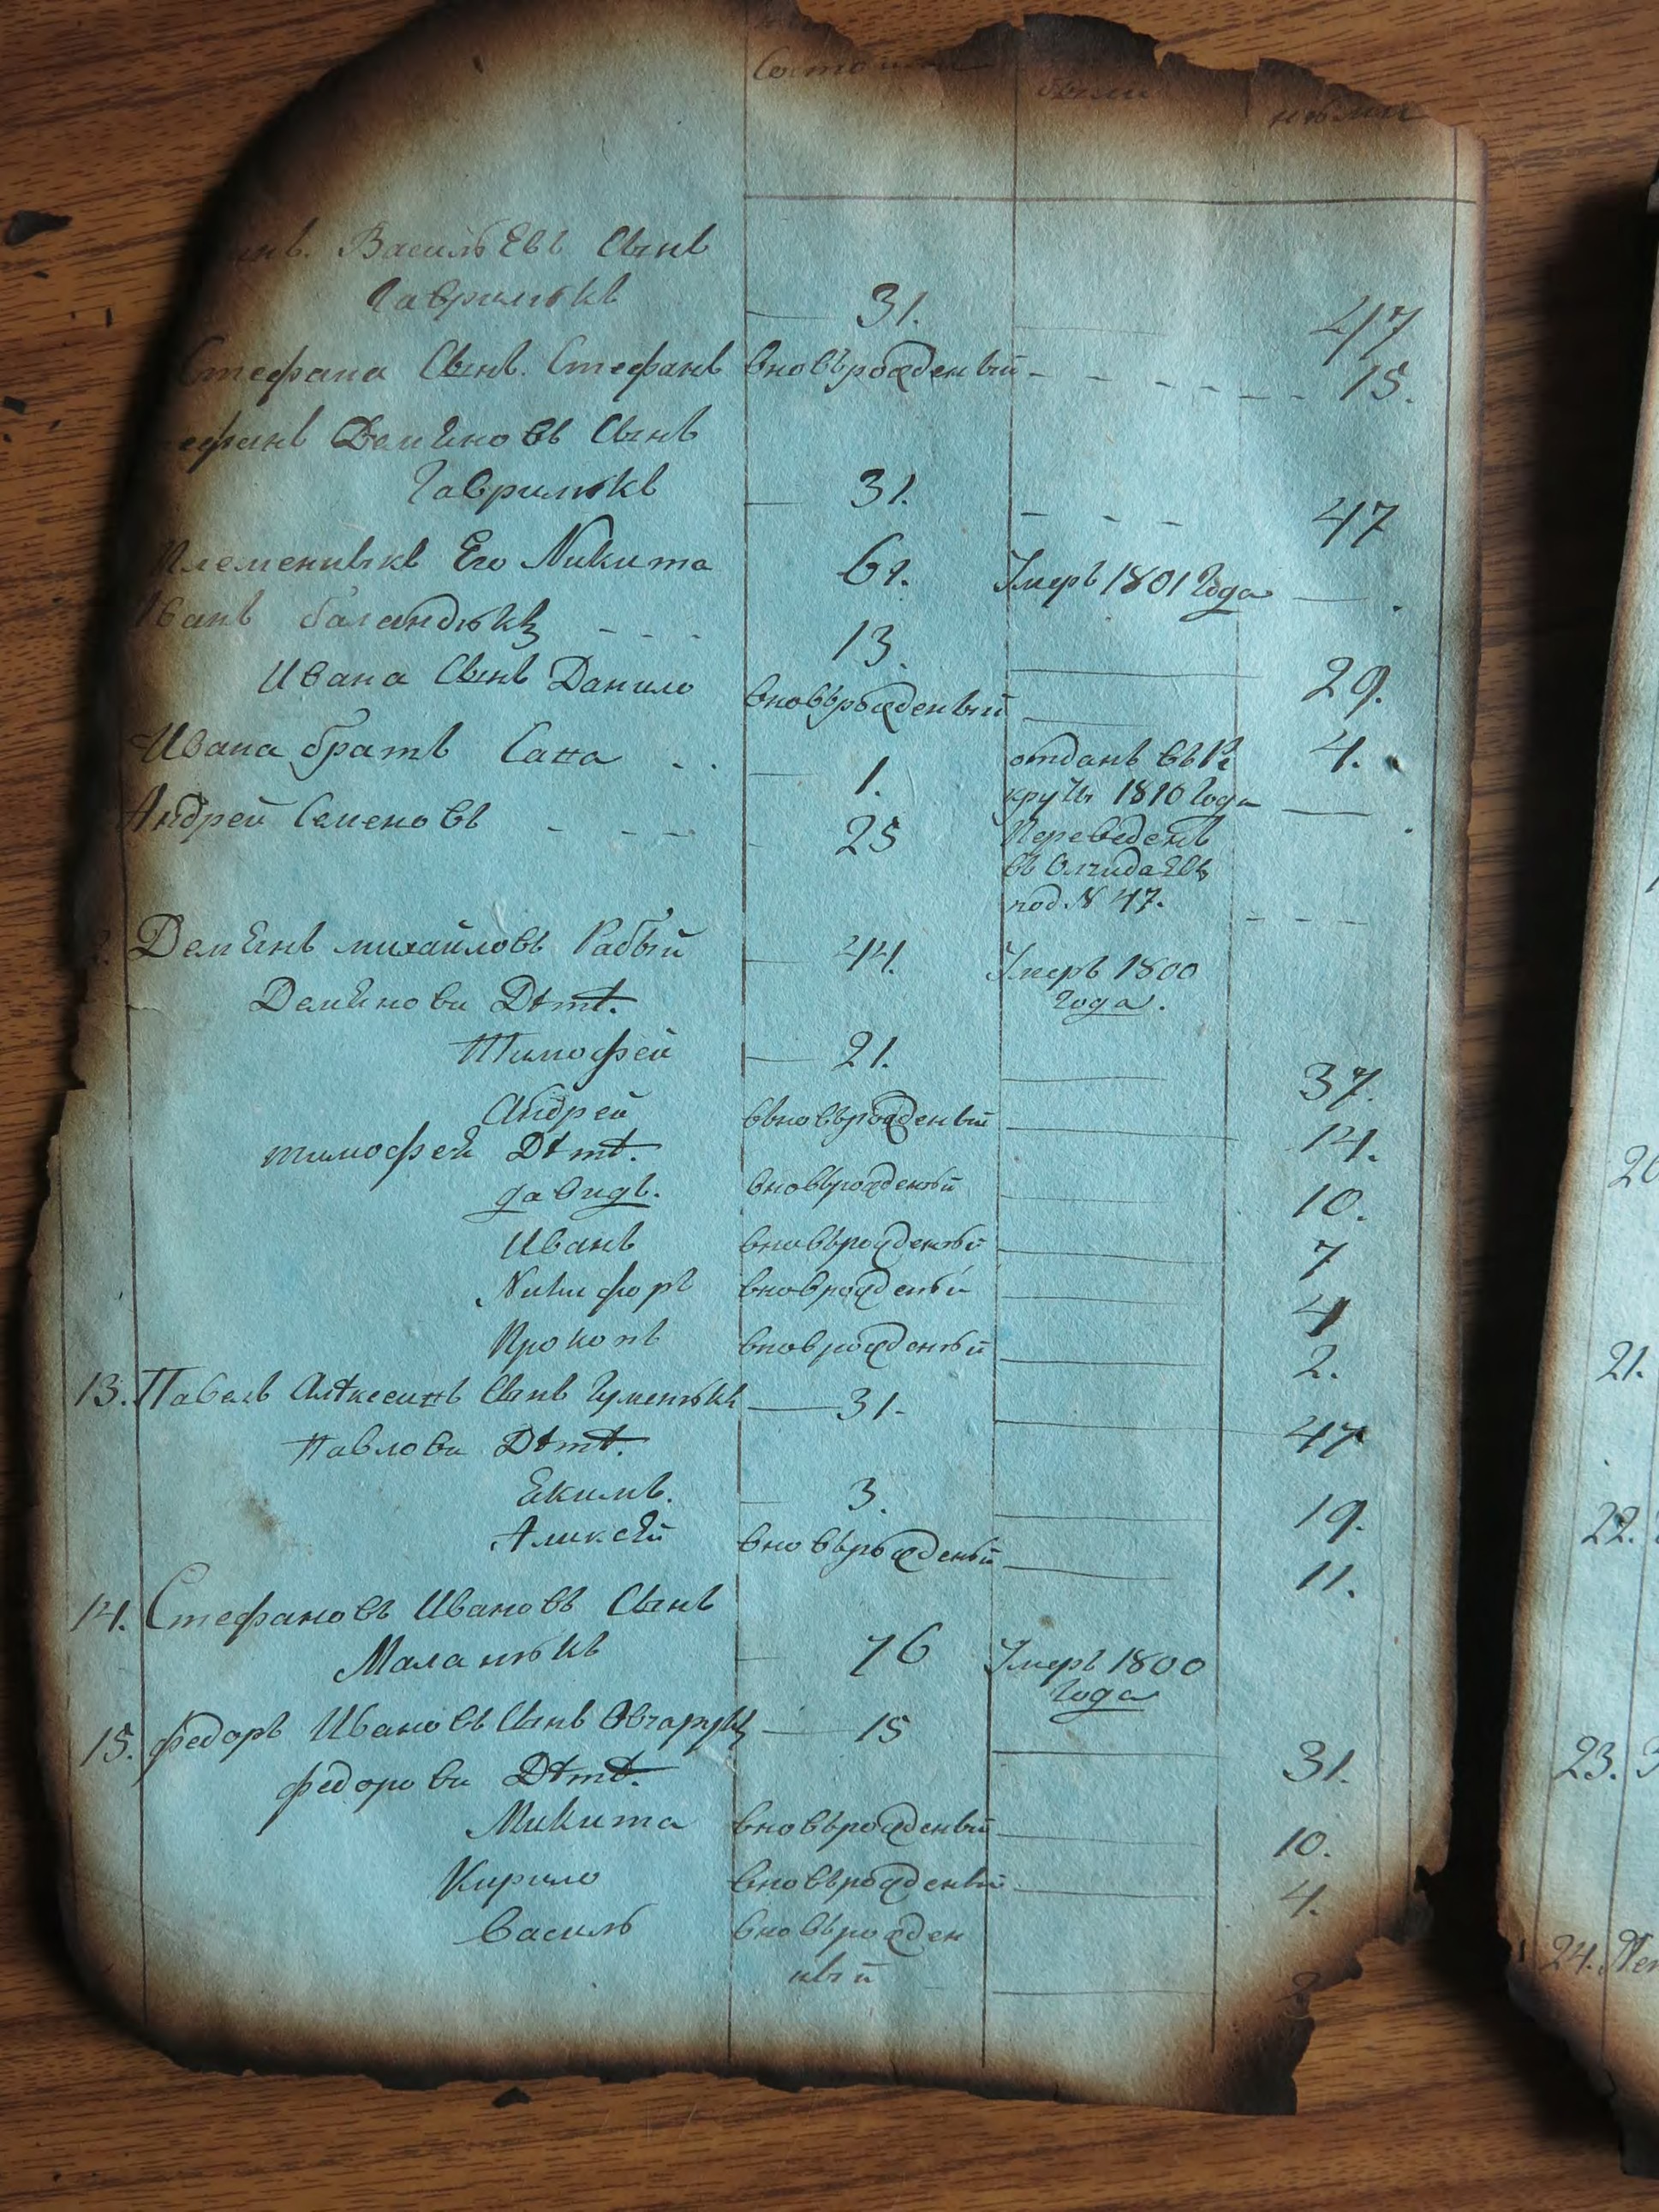 Состояли были
нѣ лѣтъ
Васильевъ Сынъ
Гаврилюкъ 31. 47
Стефана Сынъ Стефанъ вновьрожденный 15.
ефанъ Демяновъ Сынъ
Гаврилюкъ 31. 47
Племенныкъ Его Никита 61. Умеръ 1801 Года
Иванъ баландюкъ 13. 29.
Ивана Сынъ Данило вновьрожденный 4.
Ивана братъ Сава 1. отданъ въ Ре
круты 1810 Года
Андрей Семеновъ 25 Переведенъ
въ
под. N 47.
Демянъ михайловъ Рабый 44. Умеръ 1800
Года.
Демянови Дѣтѣ.
Тимофей 21. 37.
Андрей вновьрожденый 14.
тимофея Дѣтѣ.
давидъ. вновьрожденый 10.
Иванъ вновьрожденый 7
Никифоръ вноврожденый 4
Прокопъ вноврожденый 2.
13. Павелъ Алѣксеивъ Сынъ Гуменюкъ 31. 47
Павлови Дѣтѣ.
Екимъ. 3. 19.
Аликсей вновьрожденый 11.
14. Стефановъ Ивановъ Сынъ
Маланюкъ 76 Умеръ 1800
Года
15. федоръ Ивановъ Сынъ Овчарукъ 15 31.
федорови Дѣтѣ.
Микита вновьрожденый 10.
Кирило вновьрожденый 4.
Василь вновьрожден
ный 2
20
21.
22.
23.
24.